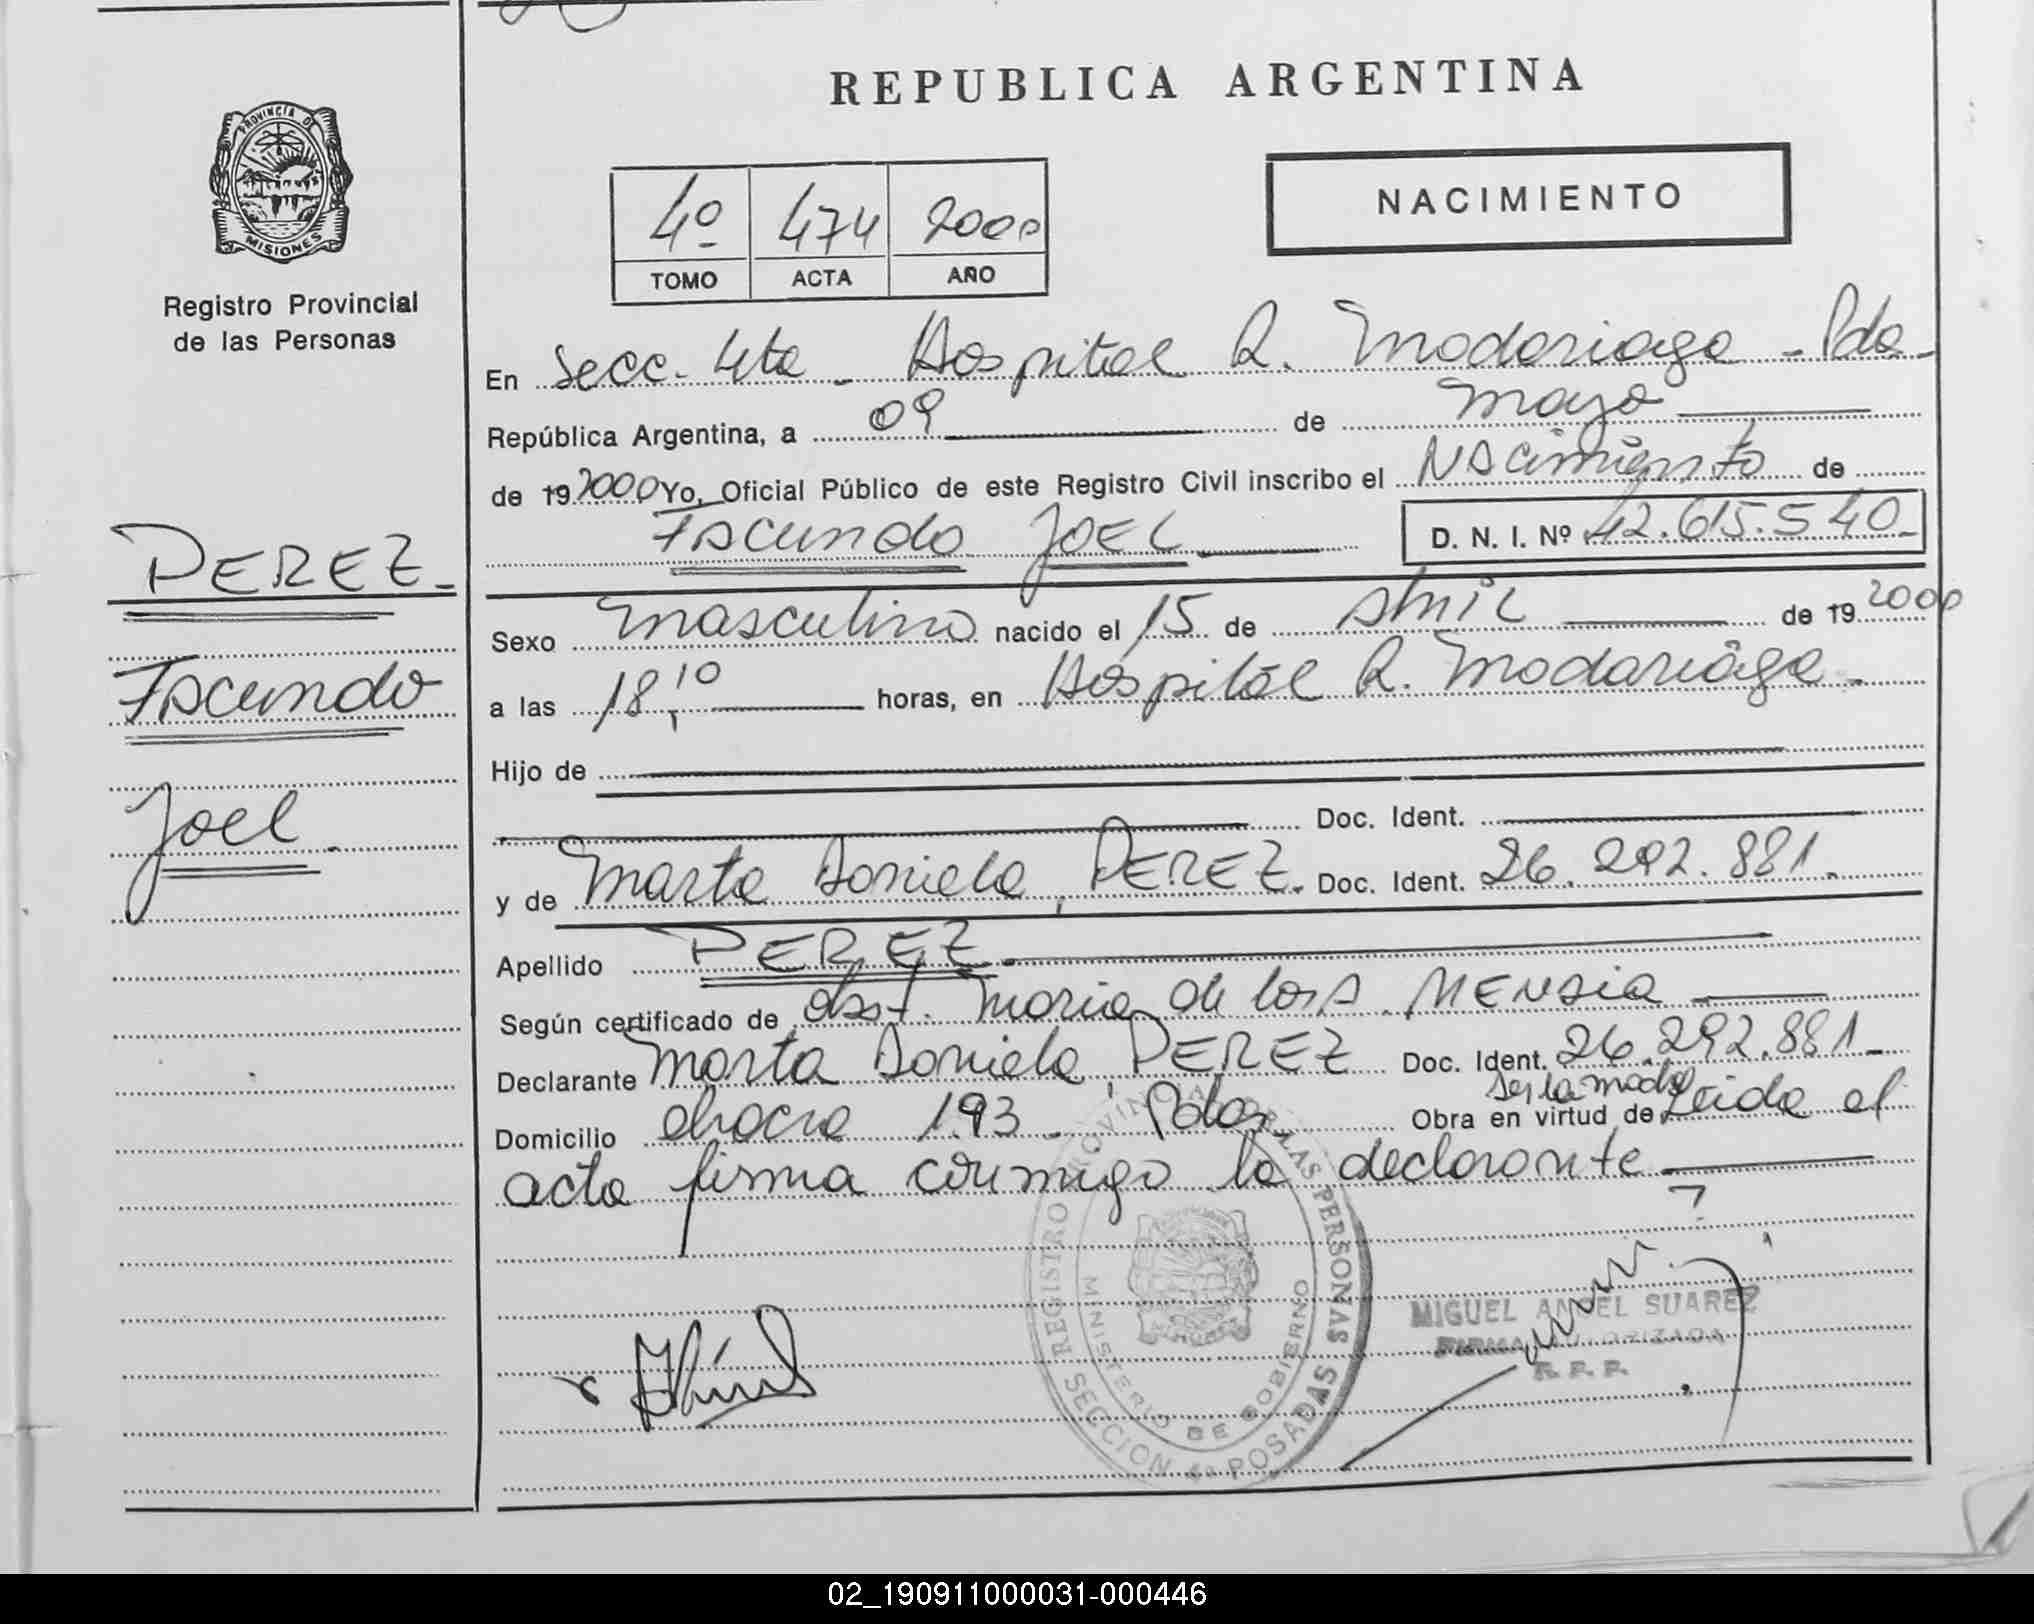 REPUBLICA ARGENTINA
PROVINCIA DE
MISIONES
Registro Provincial
de las Personas
NACIMIENTO
4º 474 2000
TOMO ACTA AÑO
En Secc. 4ta - Hospital R. Madariaga - Pdas
República Argentina, a 09 de mayo
de 19 2000 Yo, Oficial Público de este Registro Civil inscribo el Nacimiento de
Facundo Joel D. N. I. Nº 42.615.540
PEREZ
Facundo
Joel
Sexo masculino nacido el 15 de Abril de 19 2000
a las 18,10 horas, en Hospital R. Madariaga
Hijo de
Doc. Ident.
y de Marta Daniela, PEREZ. Doc. Ident. 26.292.881.
Apellido PEREZ
Según certificado de obst. Maria de los A. MENDIA
Declarante Marta Daniela, PEREZ Doc. Ident. 26.292.881
ser la madre
Domicilio chacra 193 - Pdas, Obra en virtud de Leida el
acta firma conmigo la declarante
REGISTRO PROVINCIAL DE LAS PERSONAS
MINISTERIO DE GOBIERNO
SECCION 4a POSADAS
MIGUEL ANGEL SUAREZ
FIRMA AUTORIZADA
R. P. P.
02_190911000031-000446